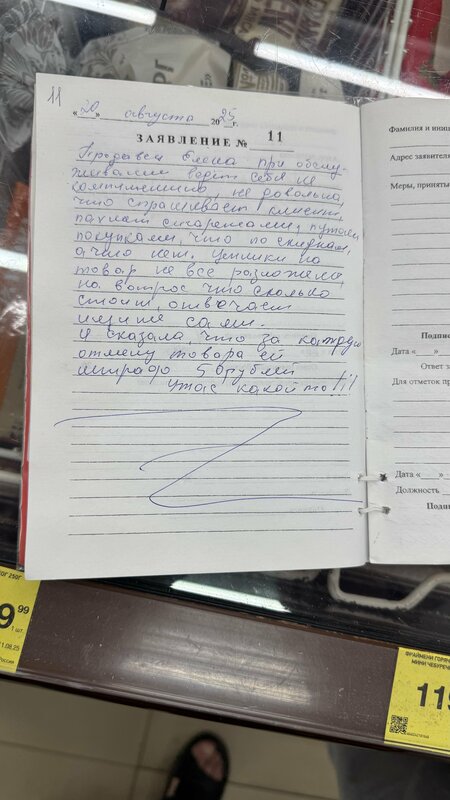 11
«20» августа 2025 г.
ЗАЯВЛЕНИЕ № 11
Продавец Елена при обслу-
живании ведет себя не
компитентно, не довольна,
что спрашивает клиент,
пахнет сигаретами, путает
покупками, что по скидкам,
а что нет. Ценники на
товар не все разложены,
на вопрос что сколько
стоит, отвечает
ищите сами.
И сказала, что за каждую
отмену товара ей
штраф 50 рублей
Ужас какой то!!!
Фамилия и иници
Адрес заявител
Меры, приняты
Подпис
Дата «
Ответ за
Для отметок пр
Дата «
Должность
Подпи
0Г 250Г
9 99
1 шт.
11.08.25
Россия
ФРАЙМЕНИ ГОРЯЧ
МИНИ ЧЕБУРЕЧ
119